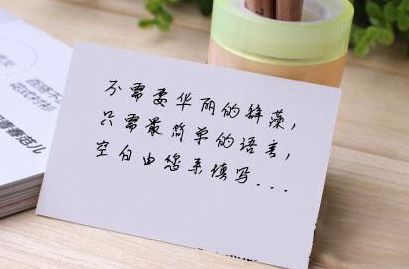 不需要华丽的辞藻，
只需最简单的语言，
空白由您来填写...